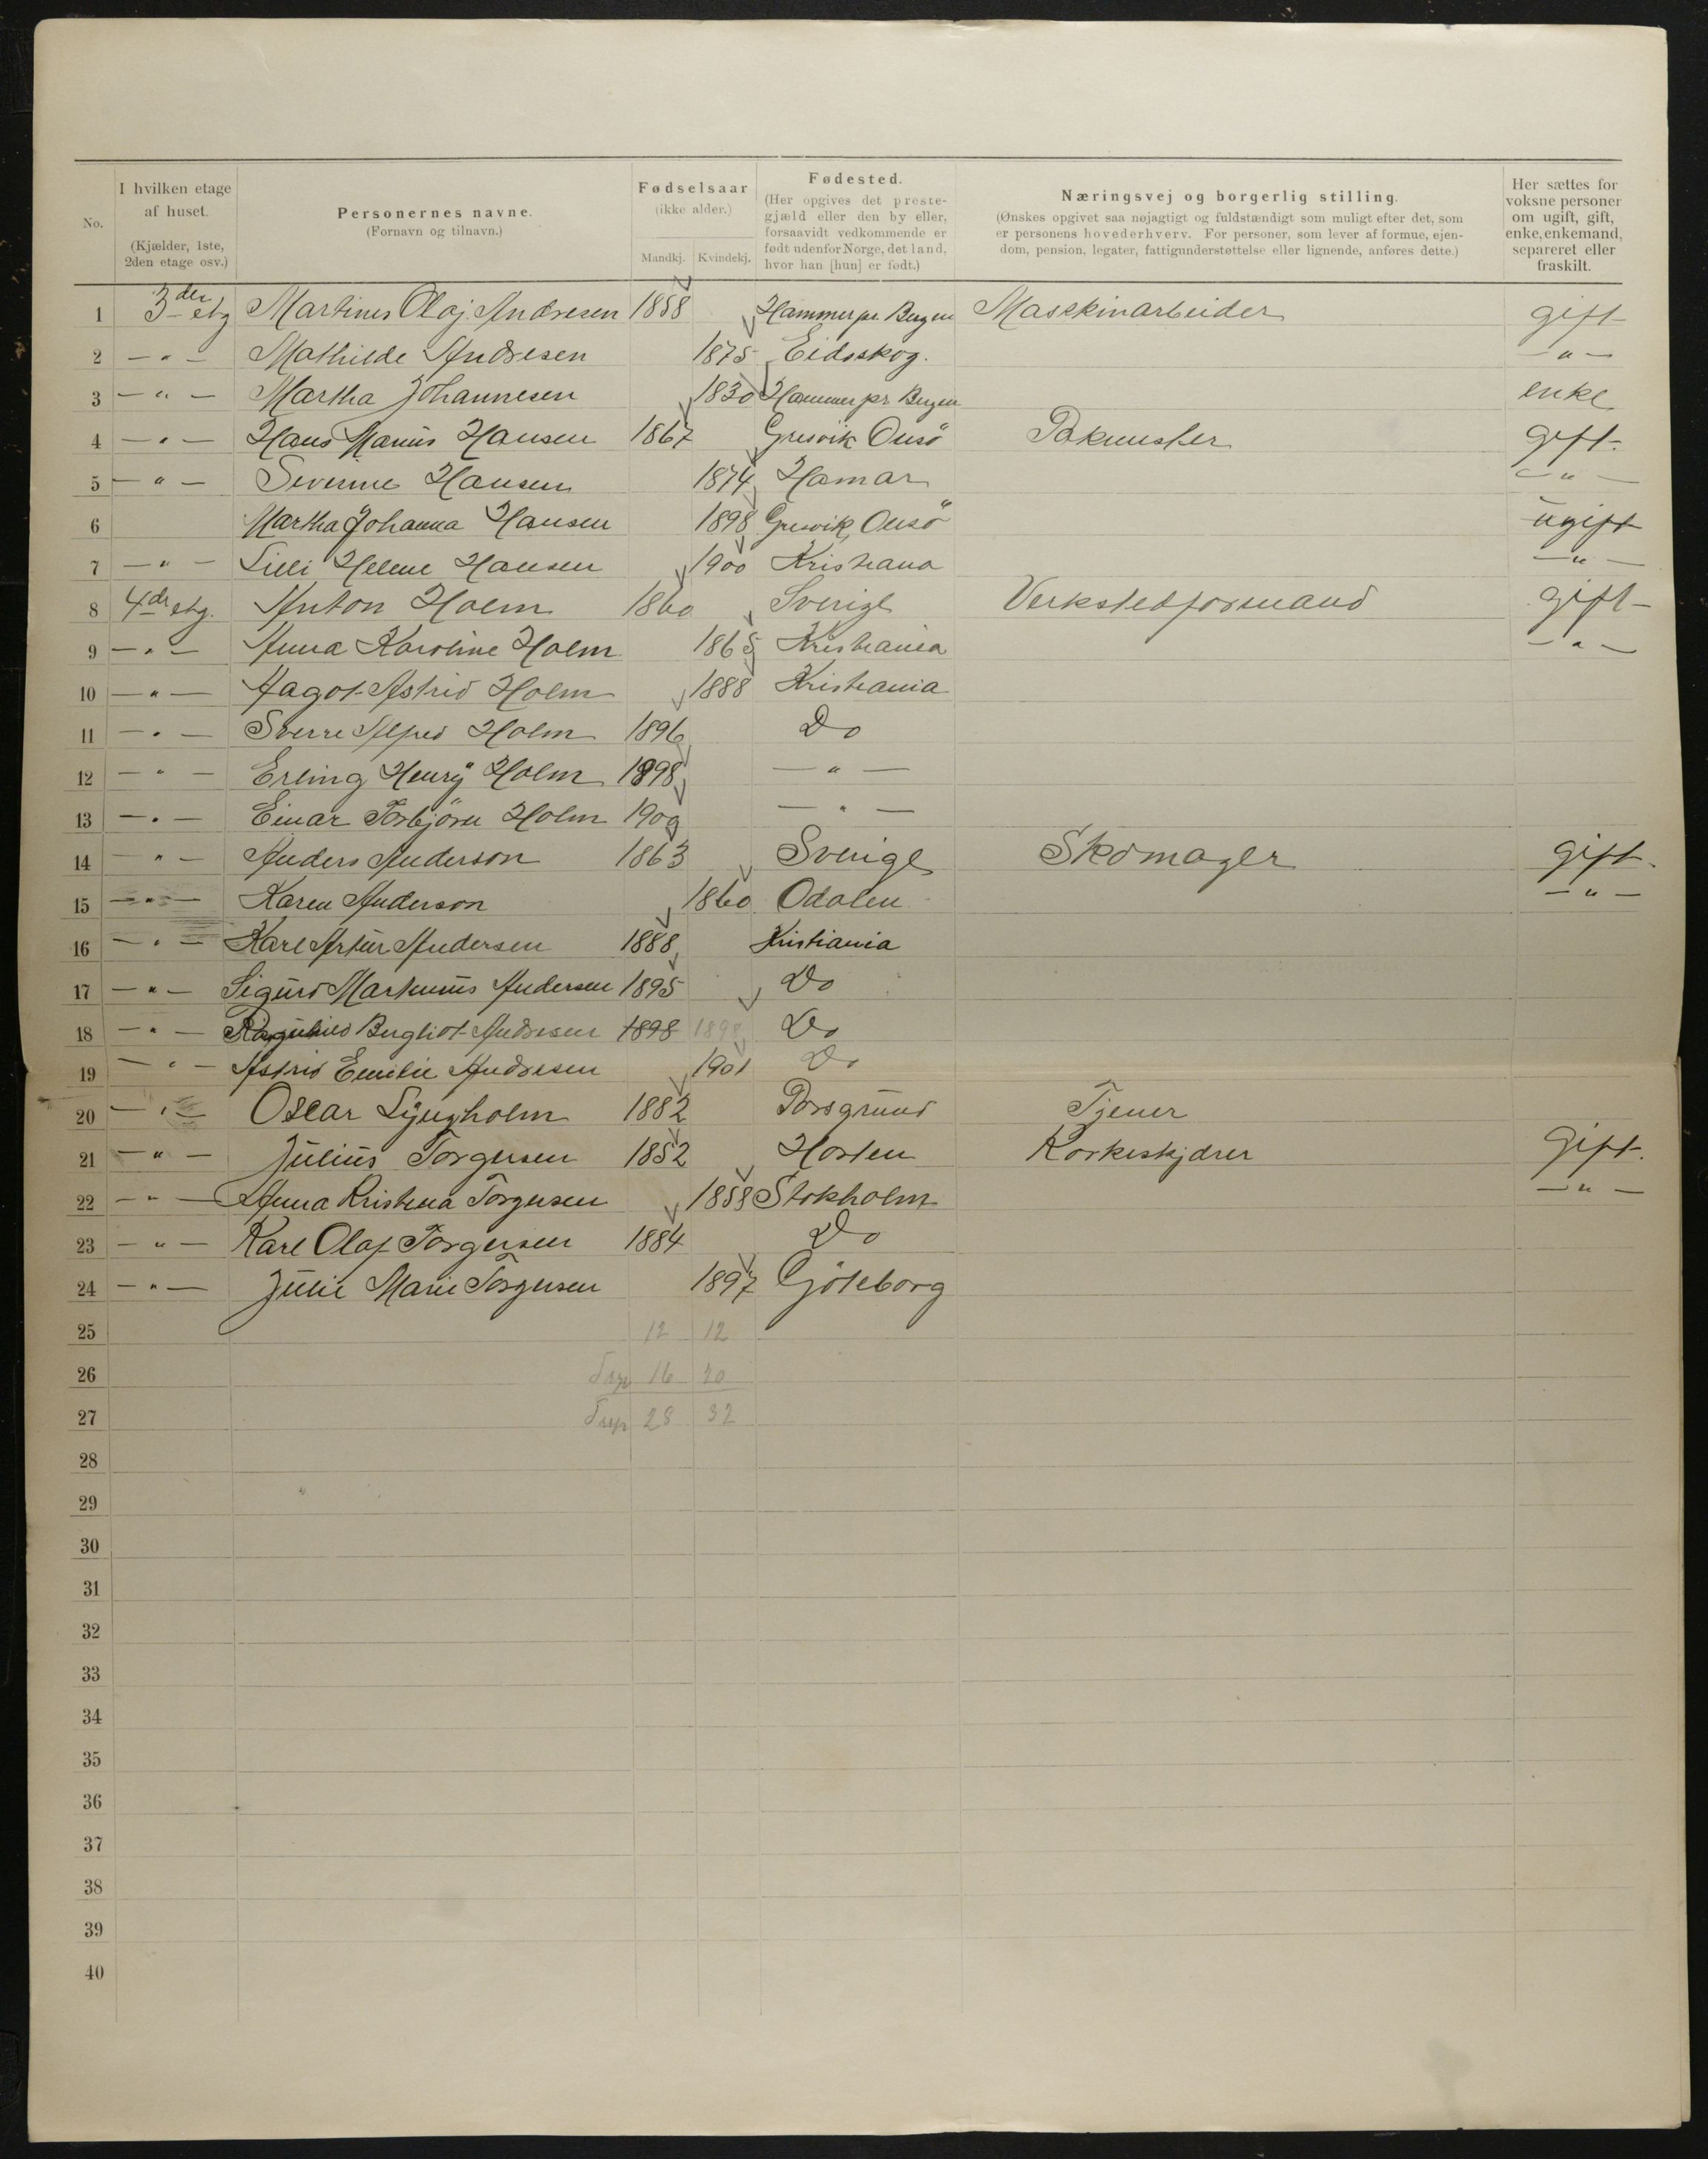 No. I hvilken etage af huset. (Kjælder, 1ste, 2den etage osv.) Personernes navne. (Fornavn og tilnavn.) Fødselsaar (ikke alder.) Mandkj. Kvindekj. Fødested. (Her opgives det prestegjæld eller den by eller, forsaavidt vedkommende er født udenfor Norge, det land, hvor han [hun] er født.) Næringsvej og borgerlig stilling. (Ønskes opgivet saa nøjagtigt og fuldstændigt som muligt efter det, som er personens hovederhverv. For personer, som lever af formue, ejendom, pension, legater, fattigunderstøttelse eller lignende, anføres dette.) Her sættes for voksne personer om ugift, gift, enke, enkemand, separeret eller fraskilt.
1 3der etg Martinus Olaj Andresen 1858 Hammer pr. Bergen Maskinarbeider gift
2 — " — Mathilde Andresen 1875 Eidsskog. — " —
3 — " — Martha Johannesen 1830 Hammer pr Bergen enke
4 — " — Hans Marius Hansen 1867 Gresvik Onsö gift.
5 — " — Severine Hansen 1874 Hamar — " —
6 Martha Johanna Hansen 1898 Gresvik, Onsö ugift
7 — " — Lilli Helene Hansen 1900 Kristiana — " —
8 4de etg. Anton Holm 1860 Sverige Verkstedformand gift
9 — " — Anna Karoline Holm 1865 Kristiania — " —
10 — " — Aagot Astrid Holm 1888 Kristiania
11 — " — Sverre Alfred Holm 1896 Do
12 — " — Erling Henry Holm 1898 — " —
13 — " — Einar Torbjörn Holm 1900 — " —
14 — " — Anders Anderson 1863 Sverige Skomager gift.
15 — " — Karen Anderson 1860 Odalen — " —
16 — " — Karl Artur Andersen 1888 Kristiania
17 — " — Sigurd Markus Andersen 1895 Do
18 — " — Ragnhild Bergliot Andresen 1898 1898 Do
19 — " — Astrid Emilie Andresen 1901 Do
20 — " — Oscar Ljungholm 1882 Porsgrund Tjener
21 — " — Julius Torgersen 1852 Horten Korkeskjærer Gift.
22 — " — Anna Kristina Torgersen 1858 Stokholm — " —
23 — " — Karl Olaf Torgersen 1884 Do
24 — " — Julie Marie Torgersen 1897 Göteborg
25 12 12
26 16 20
27 28 32
28
29
30
31
32
33
34
35
36
37
38
39
40